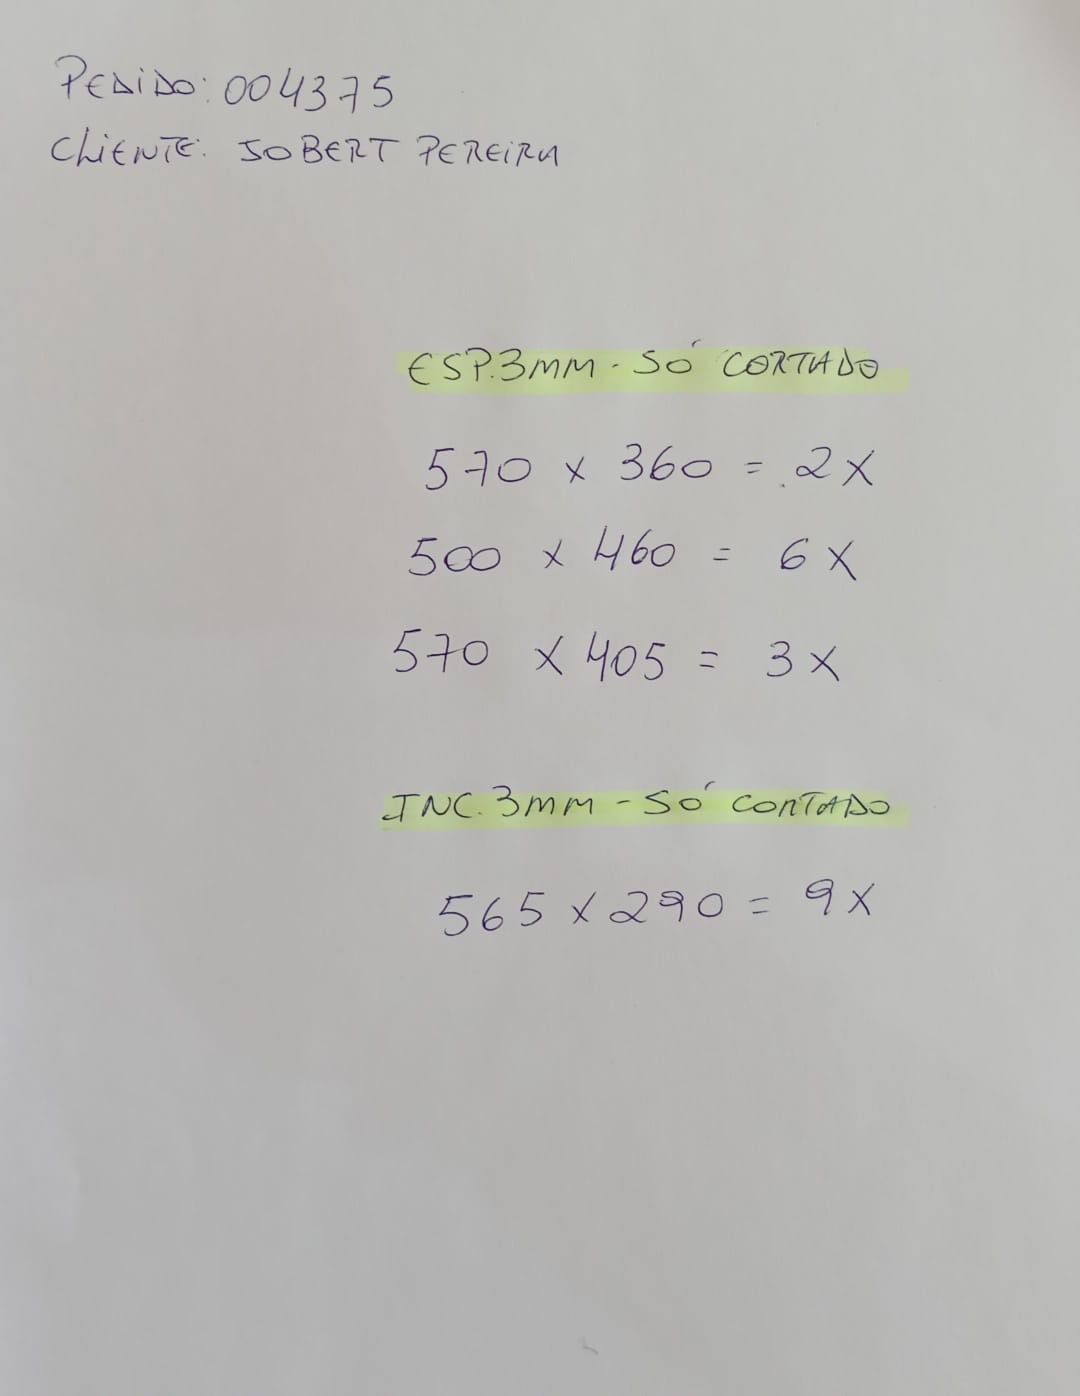 PEDIDO: 004375
CLIENTE: JOBERT PEREIRA
ESP. 3MM - SÓ CORTADO
570 x 360 = 2X
500 x 460 = 6X
570 X 405 = 3X
INC. 3MM - SÓ CORTADO
565 X 290 = 9X